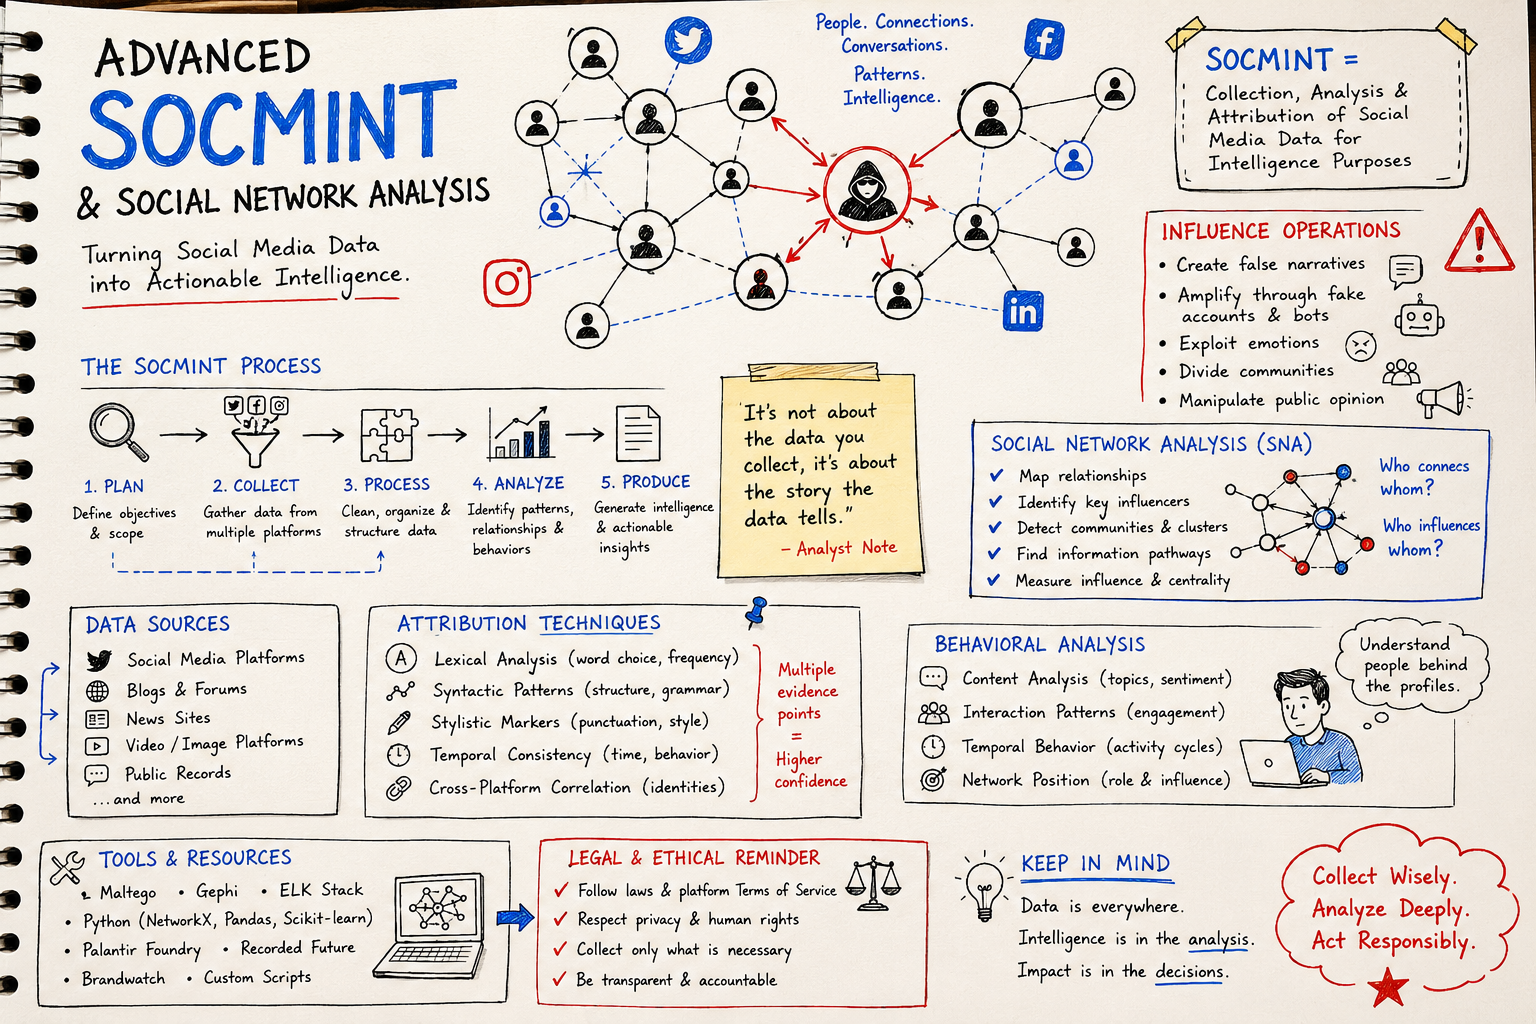 ADVANCED
SOCMINT
& SOCIAL NETWORK ANALYSIS
Turning Social Media Data
into Actionable Intelligence.
People. Connections.
Conversations.
Patterns.
Intelligence.
f
in
SOCMINT =
Collection, Analysis &
Attribution of Social
Media Data for
Intelligence Purposes
INFLUENCE OPERATIONS
!
• Create false narratives
• Amplify through fake
accounts & bots
• Exploit emotions
• Divide communities
• Manipulate public opinion
THE SOCMINT PROCESS
1. PLAN
Define objectives
& scope
2. COLLECT
Gather data from
multiple platforms
3. PROCESS
Clean, organize &
structure data
4. ANALYZE
Identify patterns,
relationships &
behaviors
5. PRODUCE
Generate intelligence
& actionable
insights
"It's not about
the data you
collect, it's about
the story the
data tells."
– Analyst Note
SOCIAL NETWORK ANALYSIS (SNA)
✔ Map relationships
✔ Identify key influencers
✔ Detect communities & clusters
✔ Find information pathways
✔ Measure influence & centrality
Who connecs
whom?
Who influences
whom?
DATA SOURCES
Social Media Platforms
Blogs & Forums
News Sites
Video / Image Platforms
Public Records
...and more
ATTRIBUTION TECHNIQUES
A Lexical Analysis (word choice, frequency)
Syntactic Patterns (structure, grammar)
Stylistic Markers (punctuation, style)
Temporal Consistency (time, behavior)
Cross-Platform Correlation (identities)
Multiple
evidence
points
=
Higher
confidence
BEHAVIORAL ANALYSIS
Content Analysis (topics, sentiment)
Interaction Patterns (engagement)
Temporal Behavior (activity cycles)
Network Position (role & influence)
Understand
people behind
the profiles.
TOOLS & RESOURCES
Maltego • Gephi • ELK Stack
• Python (NetworkX, Pandas, Scikit-learn)
• Palantir Foundry • Recorded Future
• Brandwatch • Custom Scripts
LEGAL & ETHICAL REMINDER
✓ Follow laws & platform Terms of Service
✓ Respect privacy & human rights
✓ Collect only what is necessary
✓ Be transparent & accountable
KEEP IN MIND
Data is everywhere.
Intelligence is in the analysis.
Impact is in the decisions.
Collect Wisely.
Analyze Deeply.
Act Responsibly.